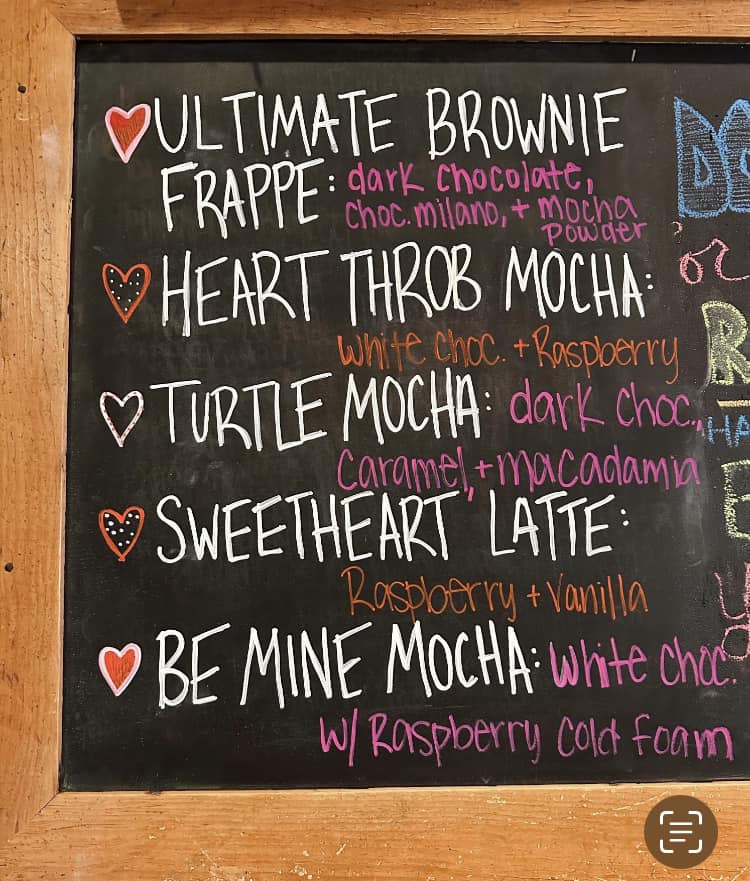 ULTIMATE BROWNIE
FRAPPE: dark chocolate,
choc. milano, + mocha
powder
HEART THROB MOCHA:
white choc. + Raspberry
TURTLE MOCHA: dark choc.,
Caramel, + macadamia
SWEETHEART LATTE:
Raspberry + Vanilla
BE MINE MOCHA: white choc.
w/ Raspberry cold foam
or
HA